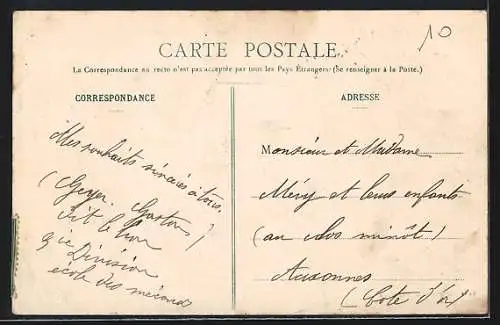 10
CARTE POSTALE
La Correspondance au recto n'est pas acceptée par tous les Pays Étrangers (Se renseigner à la Poste.)
CORRESPONDANCE
Mes souhaits sincères à tous.
(Geyer Gaston)
dit le
Division
école des
ADRESSE
Monsieur et Madame
Méry et leurs enfants
(au clos minôt)
Auxonnes
(Côte d'or)